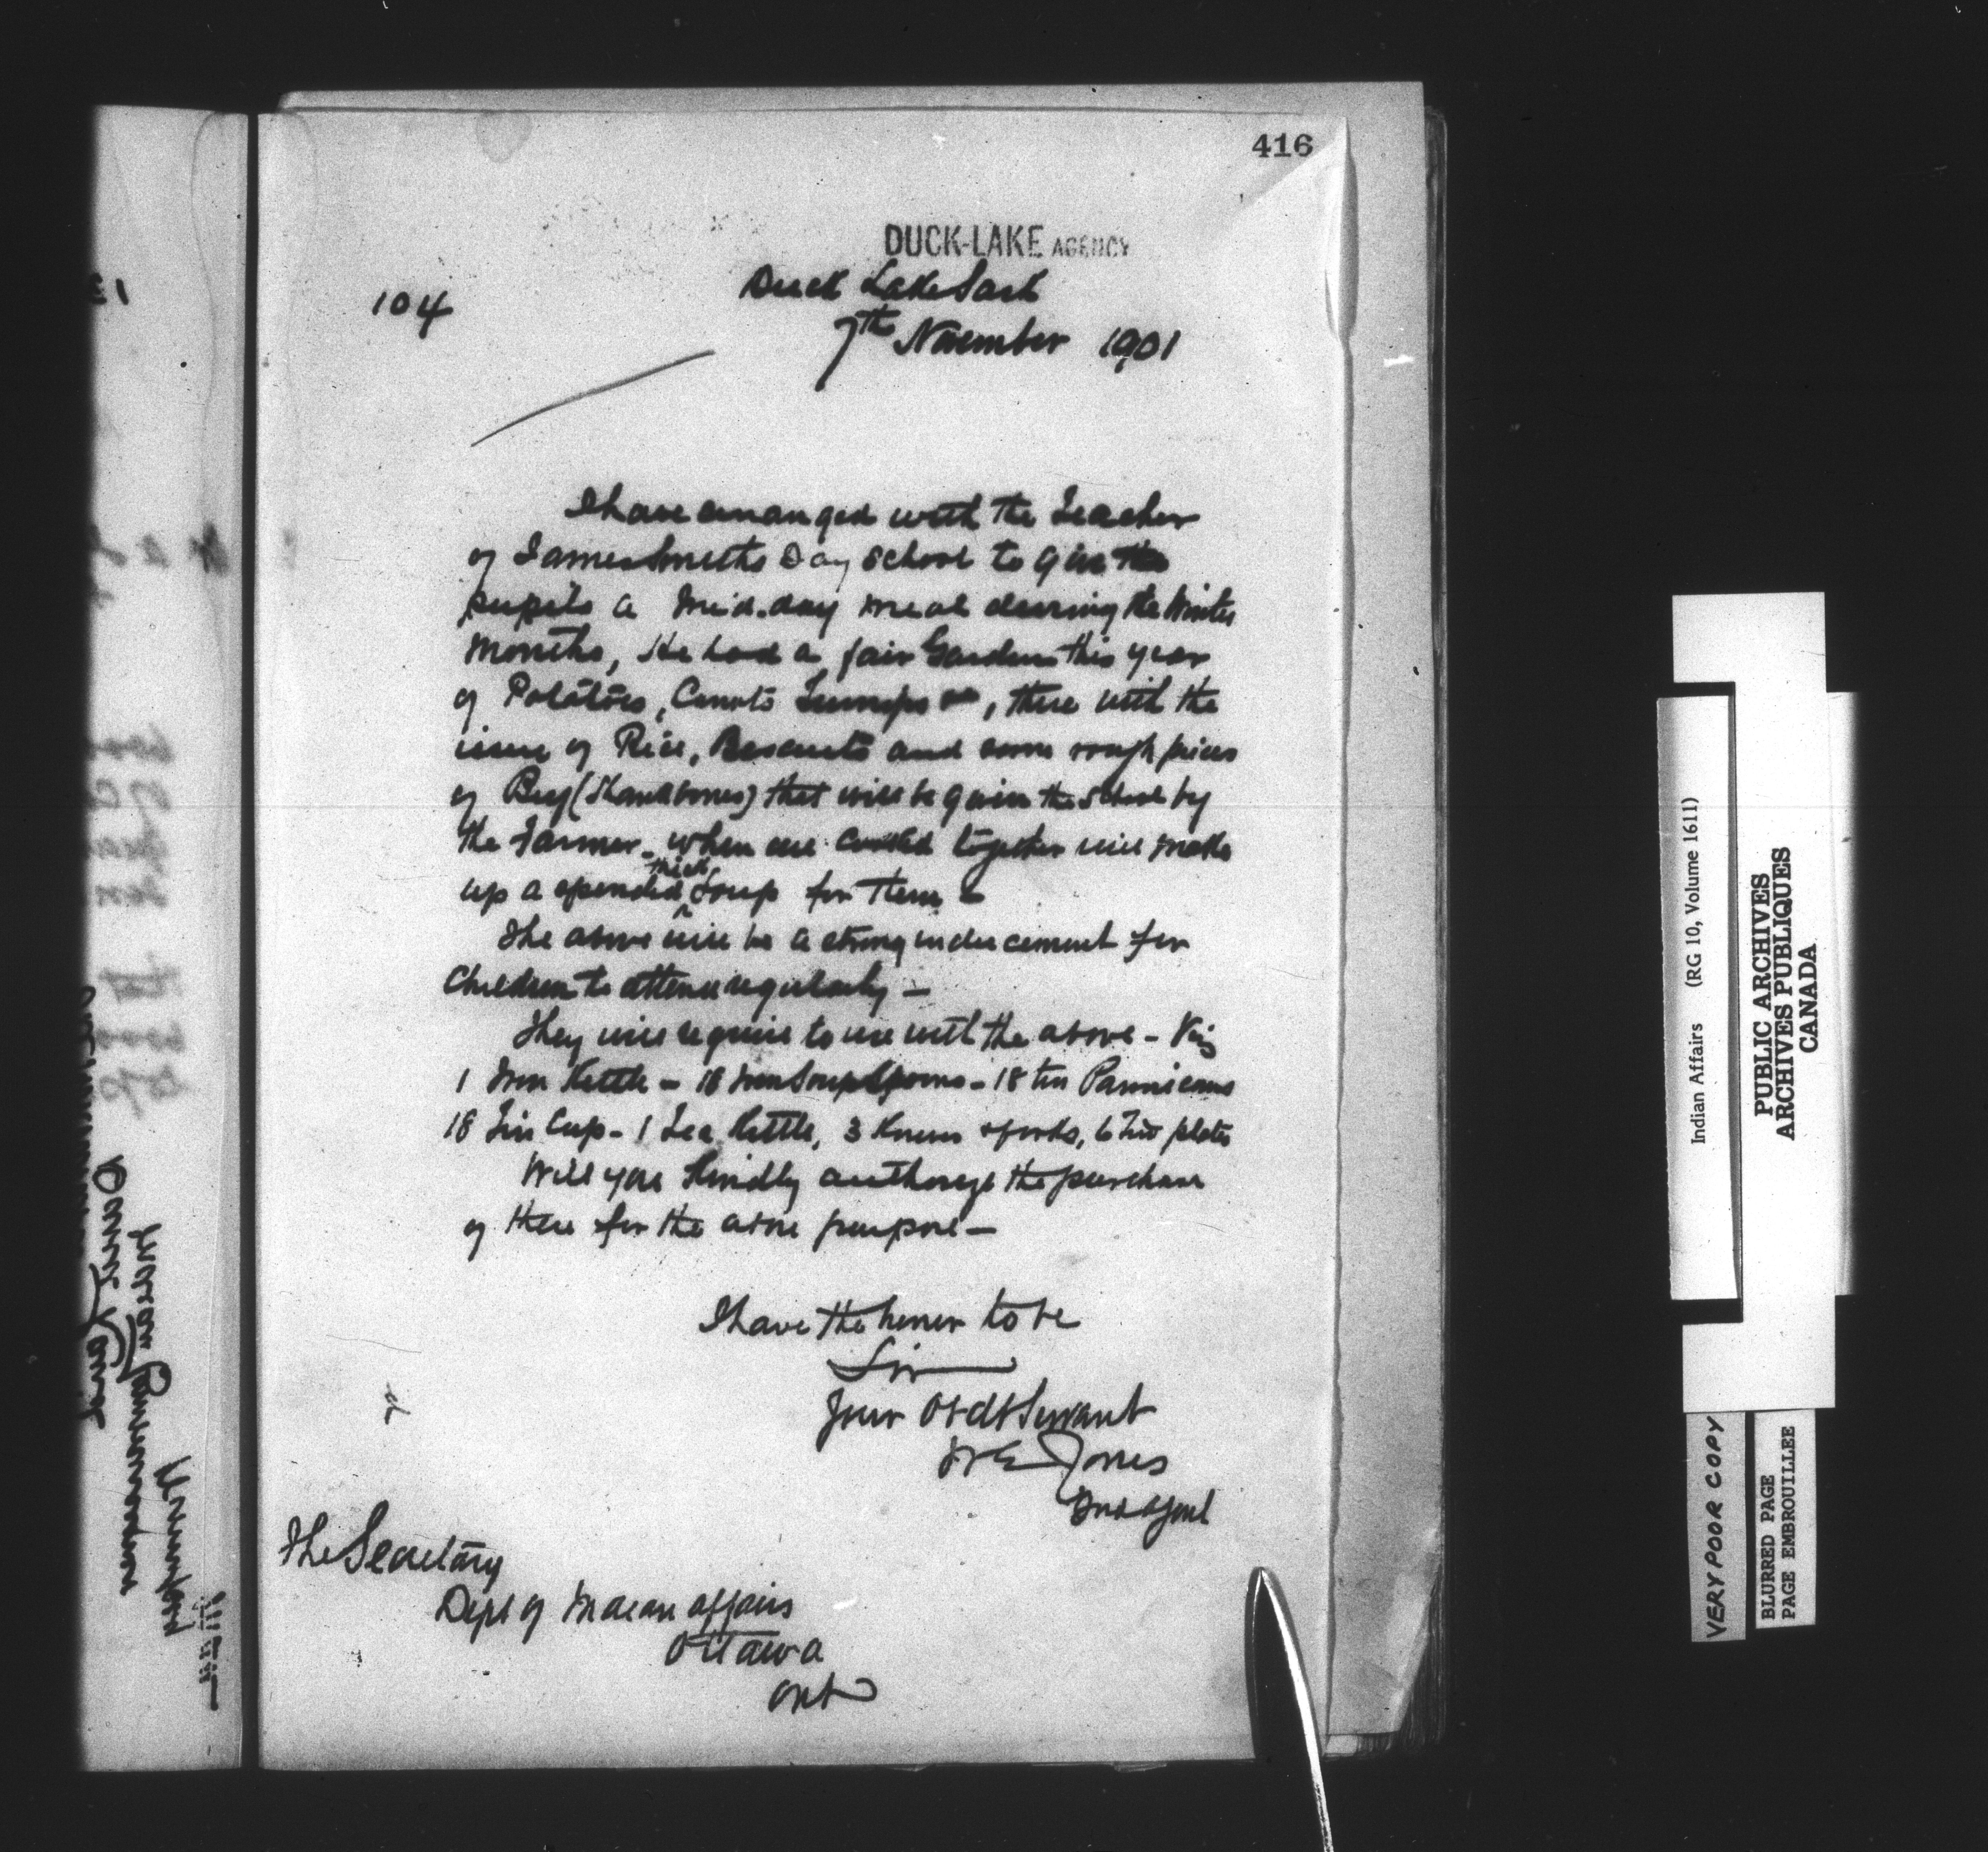 416
DUCK-LAKE AGENCY
Duck Lake Sask
104
7th November 1901
I have arranged with the Teacher
of James Smiths Day School to give the
pupils a Mid-day meal during the Winter
Months, He had a fair Garden this year
of Potatoes, Carrots Turnips &c, these with the
issue of Rice, Biscuits and some rough pieces
of Beef (Shankbones) that will be given the School by
the Farmer - when all cooked together will make
up a splendid thick Soup for them -
The above will be a strong inducement for
Children to attend regularly -
They will require to use with the above - Viz
1 Iron Kettle - 18 Iron Soup Spoons - 18 tin Pannicans
18 Tin Cup - 1 Tea Kettle, 3 Knives & forks, 6 Tin plates
Will you kindly authorize the purchase
of these for the above purpose -
I have the honor to be
Sir
Your Obdt Servant
W E Jones
Ind Agent
The Secretary
Dept of Indian Affairs
Ottawa
Ont
Indian Affairs (RG 10, Volume 1611)
PUBLIC ARCHIVES
ARCHIVES PUBLIQUES
CANADA
VERY POOR COPY
BLURED PAGE
PAGE EMBROUILLEE